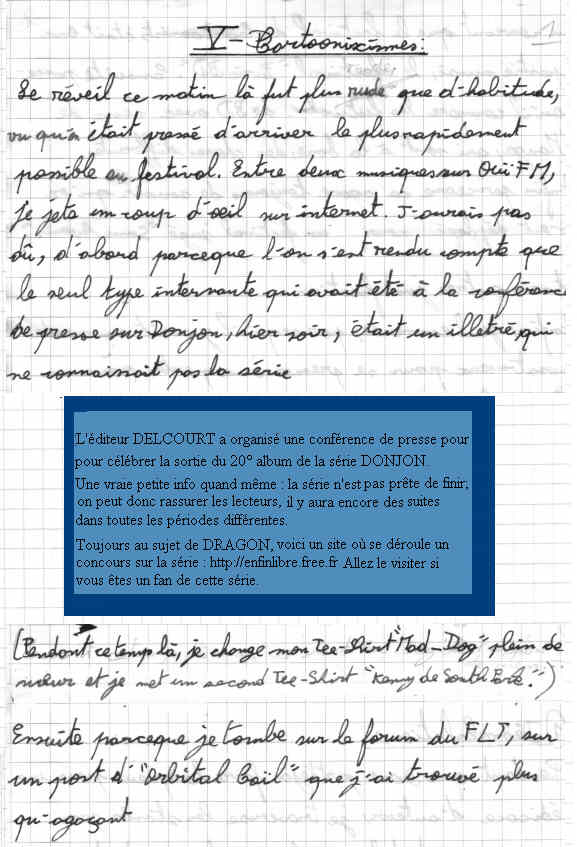 V - Cartoonixismes:
Le réveil ce matin là fut plus rude que d'habitude,
vu qu'on était pressé d'arriver le plus rapidement
possible au festival. Entre deux musiques sur Ouï FM,
je jeta un coup d'oeil sur internet. J'aurais pas
dû, d'abord parceque l'on s'est rendu compte que
le seul type internaute qui avait été à la conférence
de presse sur Donjon, hier soir, était un illetré, qui
ne connaissait pas la série
L'éditeur DELCOURT a organisé une conférence de presse pour
pour célébrer la sortie du 20° album de la série DONJON.
Une vraie petite info quand même : la série n'est pas prête de finir,
on peut donc rassurer les lecteurs, il y aura encore des suites
dans toutes les périodes différentes.
Toujours au sujet de DRAGON, voici un site où se déroule un
concours sur la série : http://enfinlibre.free.fr Allez le visiter si
vous êtes un fan de cette série.
(Pendant ce temp là, je change mon Tee-Shirt "Mad-Dog" plein de
sueur et je met un second Tee-Shirt "Kenny de South Park".)
Ensuite parceque je tombe sur le forum du FLT, sur
un post d'"Orbital Bail" que j'ai trouvé plus
qu'agaçant